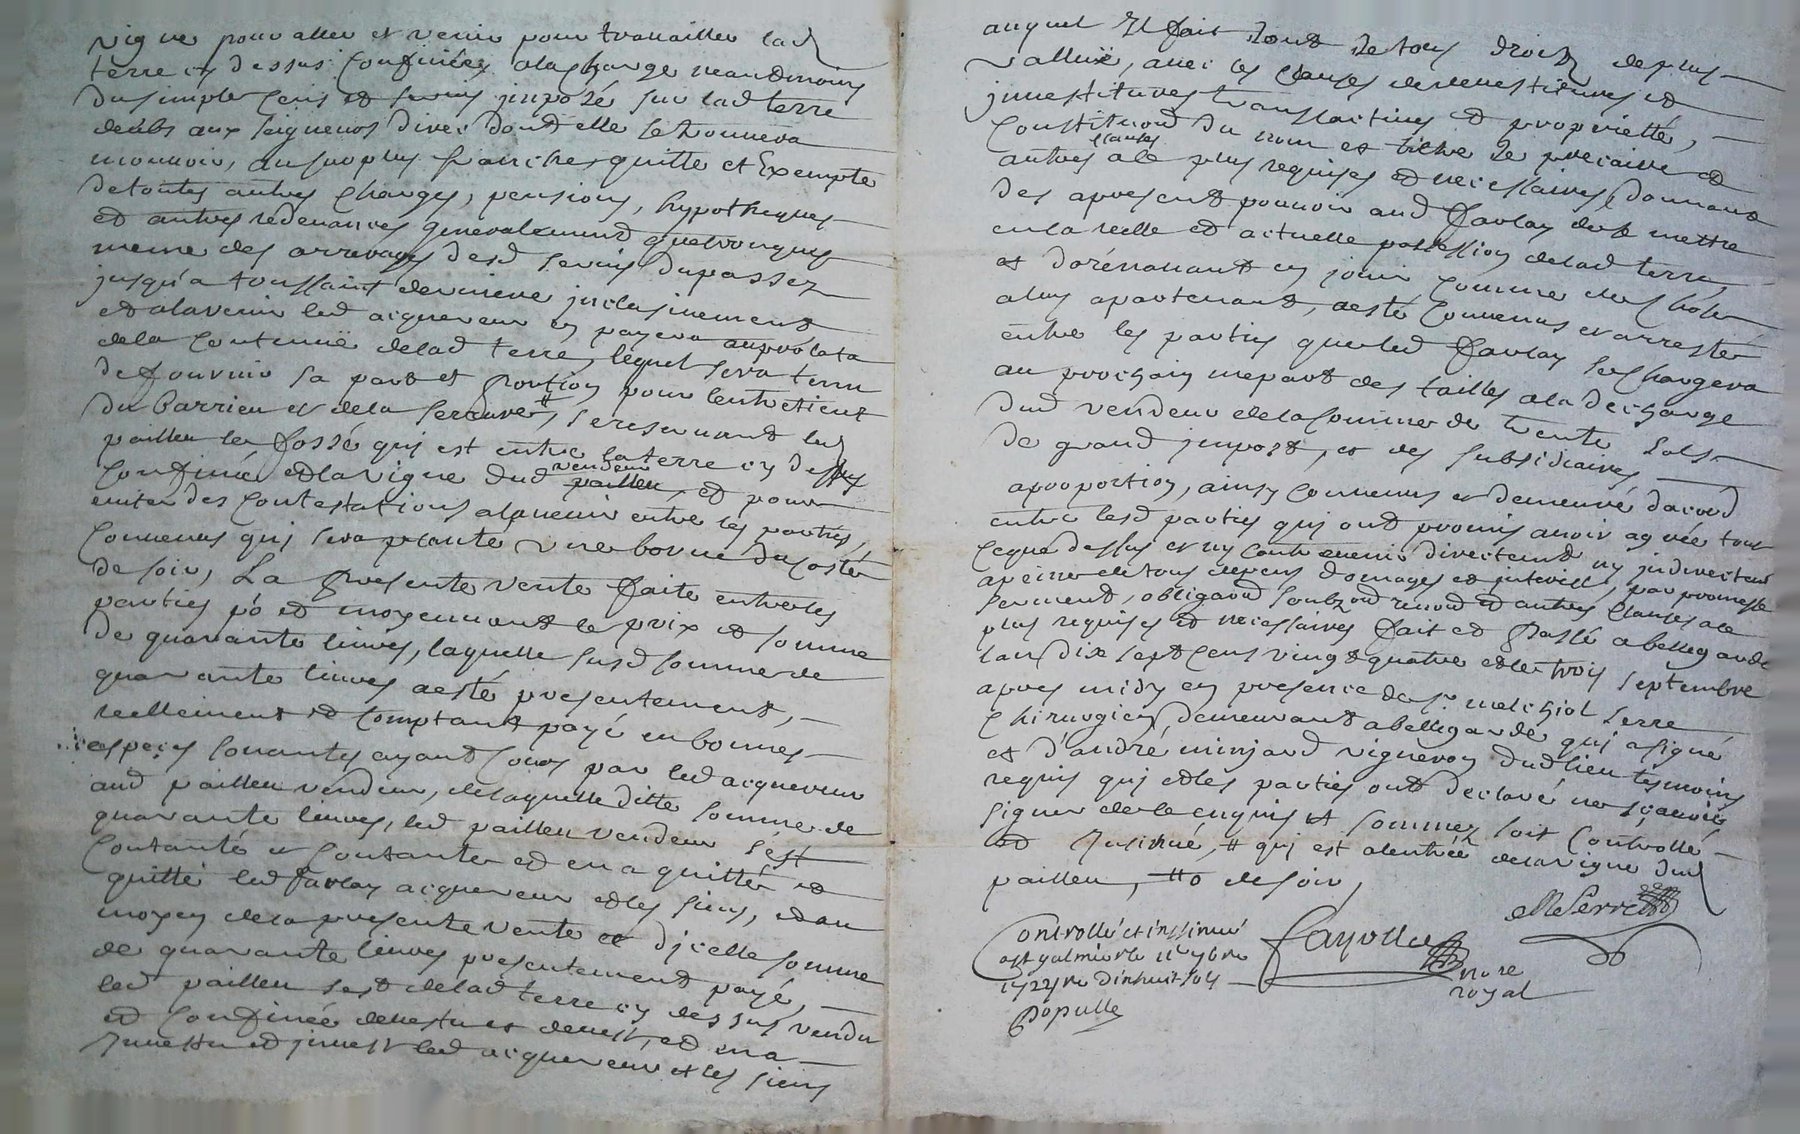 vigne pour aller et venir pour travailler lad
terre cy dessus confinées a la charge neandmoins
du simple cens et servis jmpozé sur lad terre
deübs aux seigneurs direc dont elle se trouvera
mouvoir, au surplus franche, quitte et Exempte
de toutes autres charges, pensions, hypotheques
et autres redevances generalement quelconques
meme des arrerages desd servis du passez
jusqu'a toussaint derniere jnclusivement
et alavenir led acquereur en payera au prolata
de la contenuë delad terre, lequel sera tenu
de fournir sa part et portion pour lentretient
du barrieu et de la serrure, # se reservant led
pailleu le fossé qui est entre la terre cy dessus
confinée et la vigne dud vendeur pailleu, et pour
eviter des contestations alavenir entre les parties,
convenus qui sera planté une borne du costé
de soir, La presente vente faite entre les
parties po et moyennant le prix et somme
de quarante livres, laquelle susd somme de
quarante livres a esté presentement,
reellement et comptant payé en bonnes
especes sonantes ayant cours par led acquereur
aud pailleu vendeur, de laquelle ditte somme de
quarante livres, led pailleu vendeur s'est
contanté et contante et en a quitté et
quitte led farlay acquereur et les siens, et au
moyen de la presente vente et d'jcelle somme
de quarante livres presentement payé,
led pailleu sest delad terre cy dessus vendu
et confinée devestu et devest, et en a
jnvestu et jnvest led acquereur et les siens
auquel Il fait dont de tous droits de plus
vallüe, avec les clauses de devestitures et
jnvestitures translactives et proprietté,
constitutiond du nom et tiltre de precaire et
autres clauses a ce plus requises et necessaires, donnant
des apresent pouvoir aud farlay de se mettre
en la reelle et actuelle possession delad terre,
et dorénavant en jouir comme de chose
a luy apartenant, a esté convenus et arresté
entre les parties que led farlay se chargera
au prochain mepart des tailles a la decharge
dud vendeur de la somme de trente sols
de grand jmpost, et des subsidiaires
a proportion, ainsy convenus et demeuré dacord
entre lesd parties qui ont promis avoir agrée tout
ceque dessus et ny contrevenir directemt ny jndirectemt
a peine de tous depens domages et jnterests, par promesse
serment, obligaond soubzond renond et autres clauses a ce
plus requises et necessaires fait et passé a bellegarde
lan dix sept cens vingt quatre et le trois septembre
apres midy en presence de sr melchiol serre
chirurgien demeurant a bellegarde qui a signé
et d'andré minjard vigneron dud lieu tesmoins
requis qui et les parties ont declaré ne sçavoir
signer de ce enquis et sommez soit controllé
et Insinué, # qui est alentrée de la vigne dud
pailleu, #o de soir,
MSerre
Controllé et inssinué
a st galmier le 11e 7bre
1724 re dixhuit sols
Populle
fayolle
nore
royal